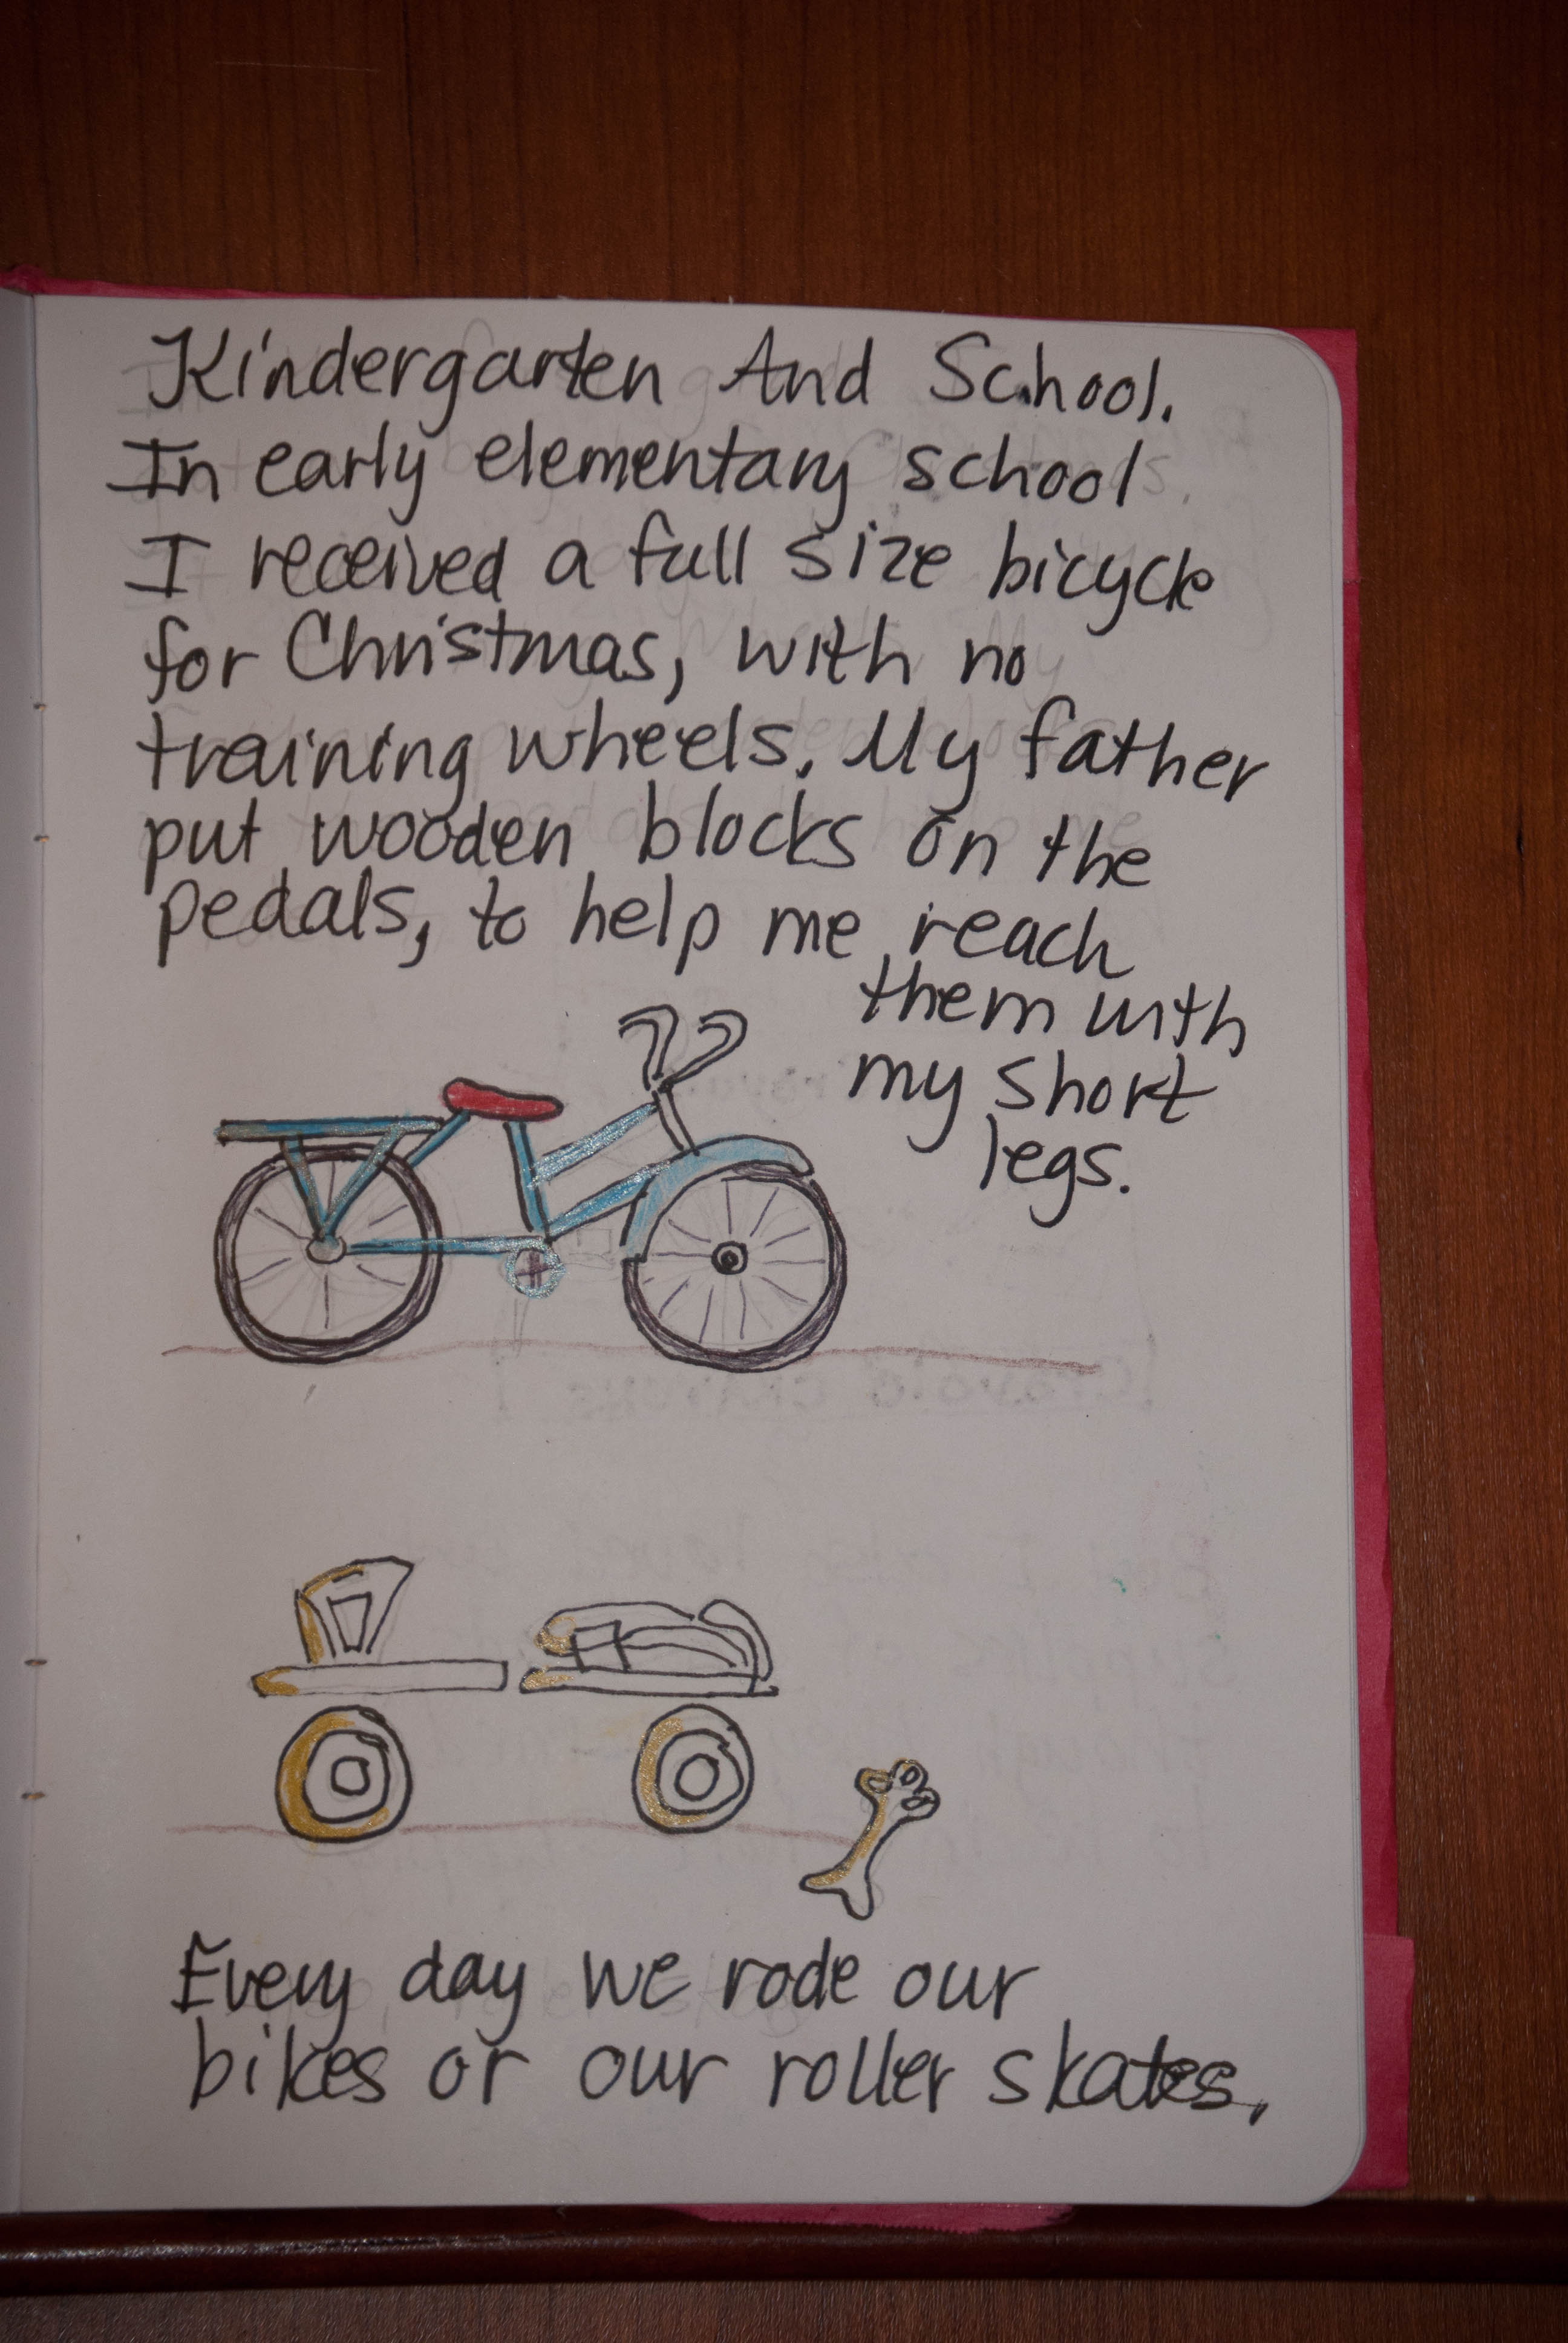 Kindergarten And School.
In early elementary school
I received a full size bicycle
for Christmas, with no
training wheels. My father
put wooden blocks on the
pedals, to help me reach
them with
my short
legs.
Every day we rode our
bikes or our roller skates,